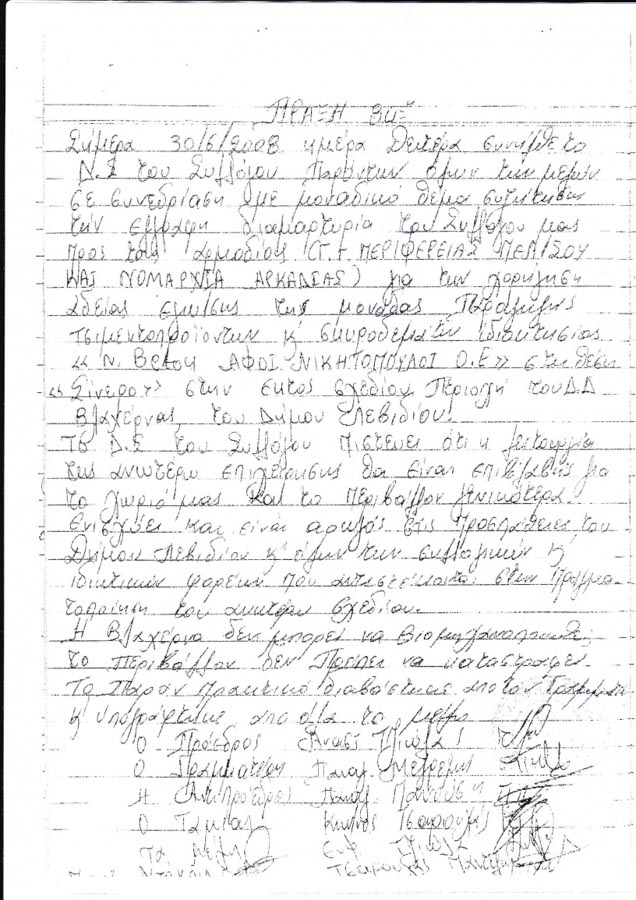 ΠΡΑΞΗ
Σήμερα 30/6/2008 ημέρα Δευτέρα συνήλθε το
Δ.Σ του Συλλόγου παρόντων όλων των μελών
σε συνεδρίαση με μοναδικό θέμα συζήτησης
την έγγραφη διαμαρτυρία του Συλλόγου μας
προς τους αρμοδίους (Γ.Γ ΠΕΡΙΦΕΡΕΙΑΣ ΠΕΛ/ΣΟΥ
ΚΑΙ ΝΟΜΑΡΧΙΑ ΑΡΚΑΔΙΑΣ) για την χορήγηση
αδείας της μονάδας παραγωγής
τσιμεντοπροϊόντων κ' σκυροδέματος ιδιοκτησίας
<< Ν. ΒΕΤΟΝ ΑΦΟΙ ΝΙΚΗΤΟΠΟΥΛΟΙ Ο.Ε >> στη θέση
στην εκτός σχεδίου περιοχή του Δ.Δ
Βλαχέρνας, του Δήμου Λεβιδίου.
Το Δ.Σ του Συλλόγου πιστεύει ότι η λειτουργία
της ανωτέρω επιχείρησης θα είναι επιβλαβής για
το χωριό μας και το περιβάλλον γενικότερα.
Ενισχύει και είναι αρωγός στις προσπάθειες του
Δήμου Λεβιδίου κ' όλων των συλλογικών κ'
ιδιωτικών φορέων που αντιστέκονται στην πραγμα
τοποίηση του ανωτέρω σχεδίου.
Η Βλαχέρνα δεν μπορεί να βιομηχανοποιηθεί,
το περιβάλλον δεν πρέπει να καταστραφεί.
Το παρόν πρακτικό διαβάστηκε από τον Γραμματέα
κ' υπογράφτηκε από όλα τα μέλη
Ο Πρόεδρος Αναστ
Ο Γραμματέας Παναγ
Η Αντιπρόεδρος Παναγ
Ο Ταμίας Κων/νος Τσαρούχας
Τα μέλη
Τσαρούχας